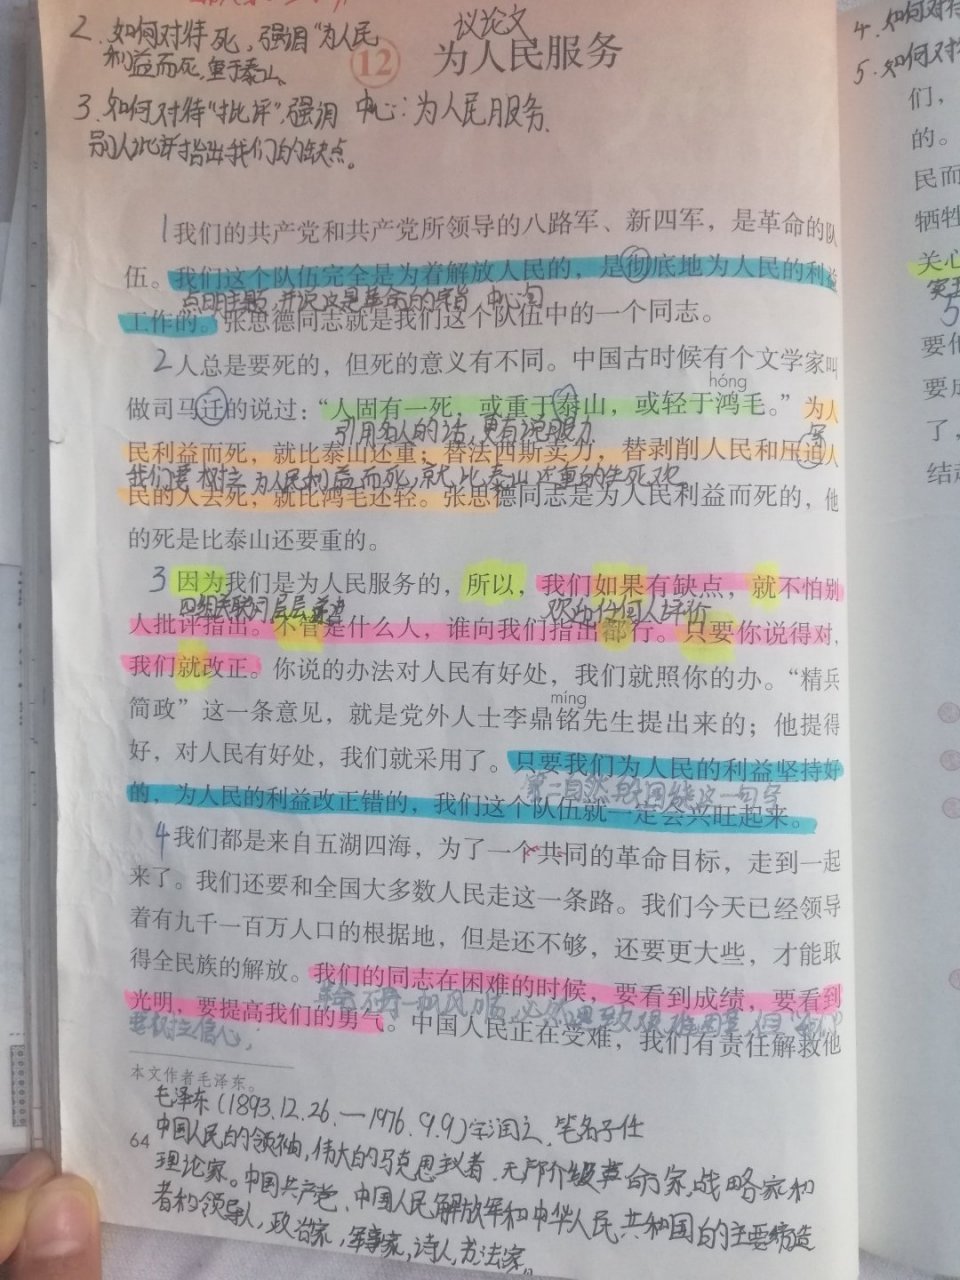 2.如何对待死,强调“为人民
利益而死,重于泰山。
议论文
12 为人民服务
3.如何对待“批评”,强调
别人批评指出我们的缺点。
中心:为人民服务.
1我们的共产党和共产党所领导的八路军、新四军,是革命的队
伍。我们这个队伍完全是为着解放人民的,是彻底地为人民的利益
点明主题,并说这是革命的宗旨,中心句
工作的。张思德同志就是我们这个队伍中的一个同志。
2人总是要死的,但死的意义有不同。中国古时候有个文学家叫
hóng
做司马迁的说过:“人固有一死,或重于泰山,或轻于鸿毛。”为人
引用名人的话,更有说服力
民利益而死,就比泰山还重;替法西斯卖力,替剥削人民和压迫人
我们要树立为人民利益而死,就比泰山还重的生死观
民的人去死,就比鸿毛还轻。张思德同志是为人民利益而死的,他
的死是比泰山还要重的。
3因为我们是为人民服务的,所以,我们如果有缺点,就不怕别
四组关联词层层递进
欢迎任何人评价
人批评指出。不管是什么人,谁向我们指出都行。只要你说得对,
我们就改正。你说的办法对人民有好处,我们就照你的办。“精兵
míng
简政”这一条意见,就是党外人士李鼎铭先生提出来的;他提得
好,对人民有好处,我们就采用了。只要我们为人民的利益坚持好
第二自然段围绕这一句写
的,为人民的利益改正错的,我们这个队伍就一定会兴旺起来。
4我们都是来自五湖四海,为了一个共同的革命目标,走到一起
来了。我们还要和全国大多数人民走这一条路。我们今天已经领导
着有九千一百万人口的根据地,但是还不够,还要更大些,才能取
得全民族的解放。我们的同志在困难的时候,要看到成绩,要看到
光明,要提高我们的勇气。中国人民正在受难,我们有责任解救他
要树立信心,
本文作者毛泽东。
毛泽东(1893.12.26.—1976.9.9)字润之,笔名子任
64 中国人民的领袖,伟大的马克思主义者.无产阶级革命家,战略家和
理论家。中国共产党、中国人民解放军和中华人民共和国的主要缔造
者和领导人,政治家,军事家,诗人,书法家。
4.如何对待
5.如何对待
们,
的。
民而
牺牲
关心
5
要他
要成
了,
结起